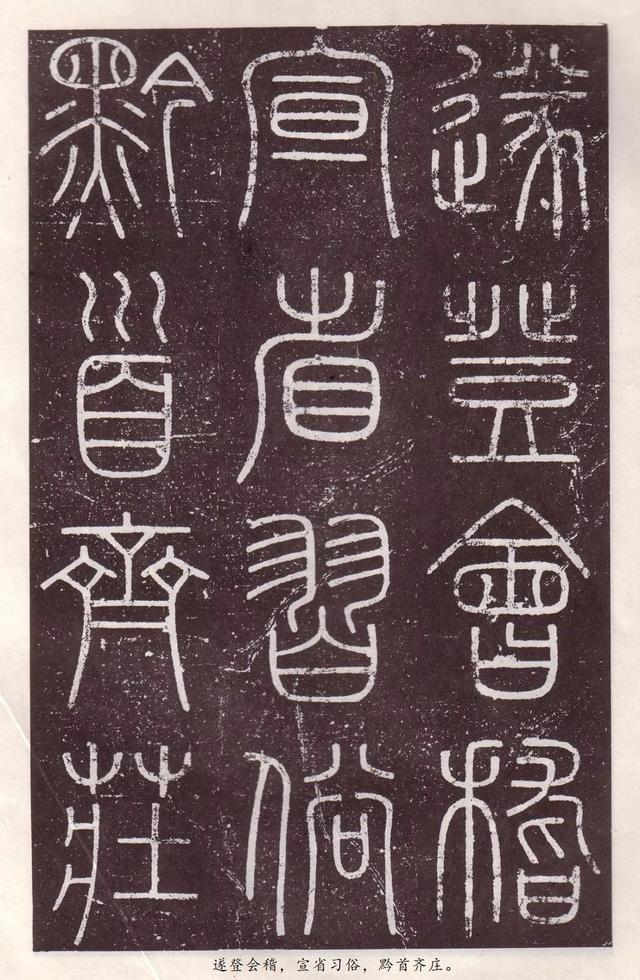 遂登會稽
宣省習俗
黔首齊莊
遂登会稽，宣省习俗，黔首齐庄。